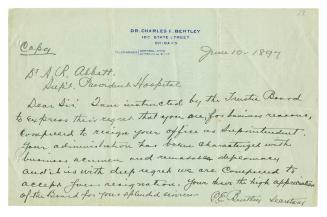 DR. CHARLES E. BENTLEY
163 STATE STREET
CHICAGO
(Copy)
June 10-1897
Dr A. R. Abbott.
Supt. Provident Hospital
Dear Sir I am instructed by the Trustee Board
to express their regret that you are for business reasons,
compelled to resign your office as Superintendent.
Your administration has been characterized with
business acumen and remarkable diplomacy
and it is with deep regret we are compelled to
accept your resignation. You have the high appreciation
of the Board for your splendid services
C. E. Bentley Secretary